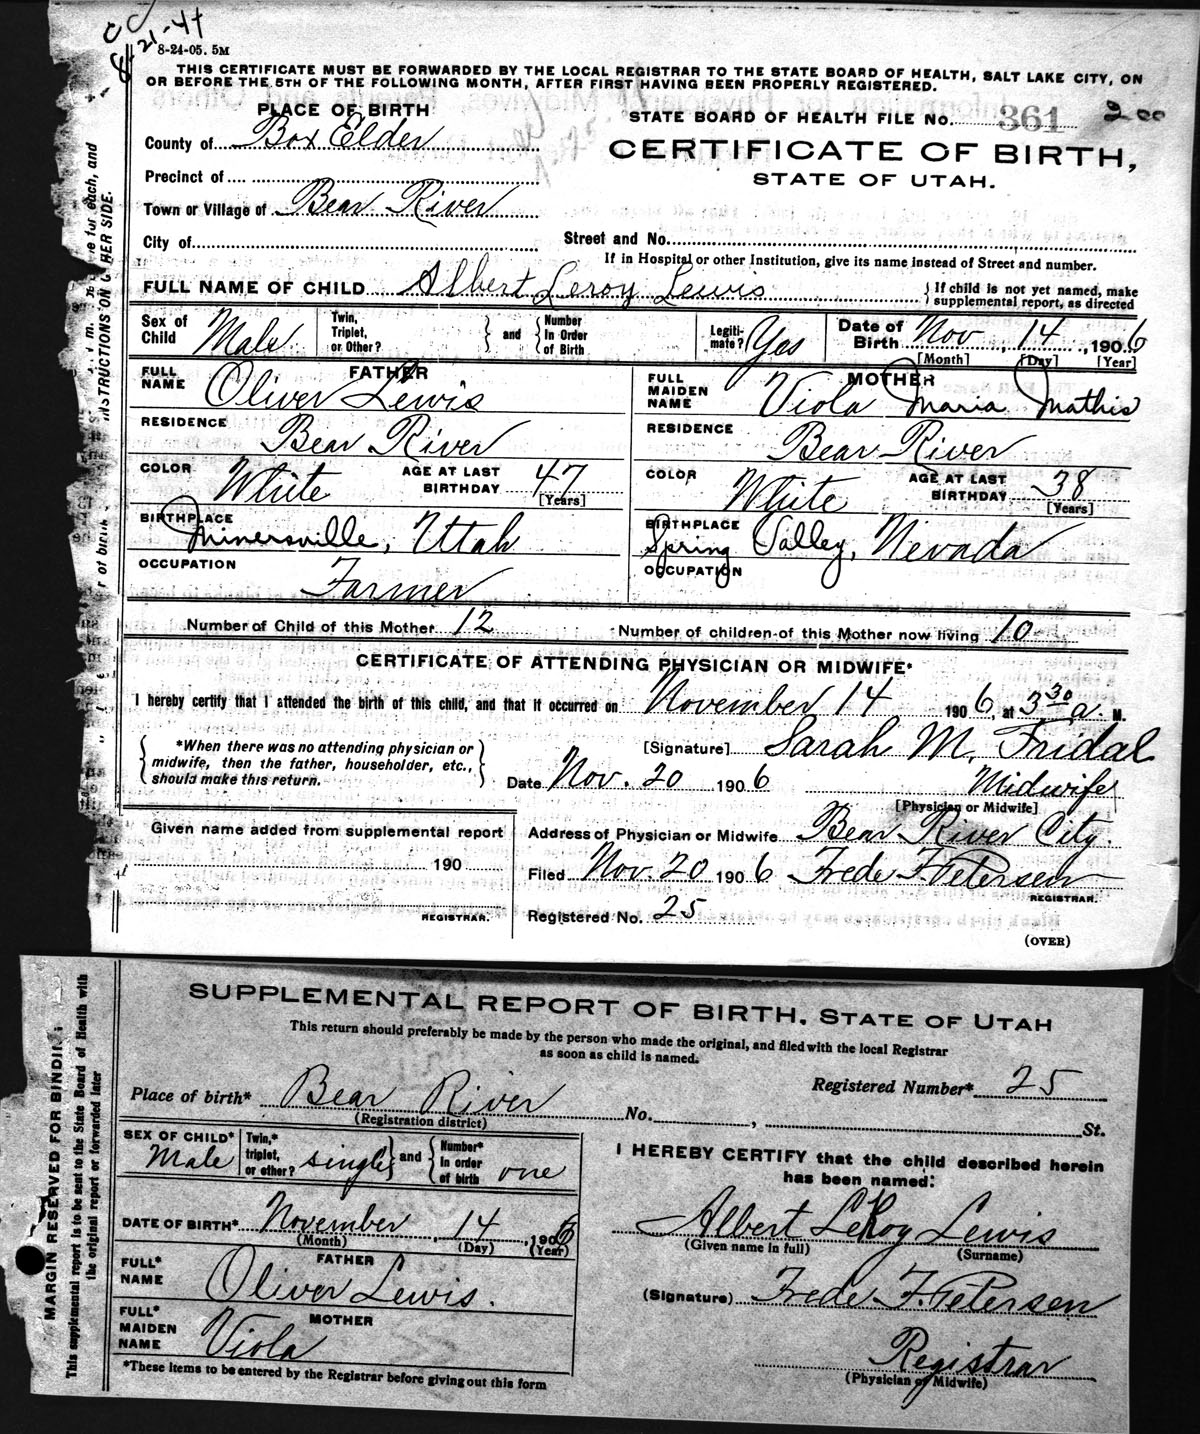 CC
8-21-41
8-24-05. 5M
THIS CERTIFICATE MUST BE FORWARDED BY THE LOCAL REGISTRAR TO THE STATE BOARD OF HEALTH, SALT LAKE CITY, ON
OR BEFORE THE 5TH OF THE FOLLOWING MONTH, AFTER FIRST HAVING BEEN PROPERLY REGISTERED.
PLACE OF BIRTH
STATE BOARD OF HEALTH FILE No. 361 2 00
County of Box Elder
CERTIFICATE OF BIRTH,
STATE OF UTAH.
Precinct of
Town or Village of Bear River
City of
Street and No.
If in Hospital or other Institution, give its name instead of Street and number.
FULL NAME OF CHILD Albert Leroy Lewis { If child is not yet named, make supplemental report, as directed
Sex of Child Male Twin, Triplet, or Other? } and { Number In Order of Birth Legiti-mate? Yes Date of Birth Nov 14, 1906
[Month] [Day] [Year]
FATHER
FULL NAME Oliver Lewis
RESIDENCE Bear River
COLOR White AGE AT LAST BIRTHDAY 47
[Years]
BIRTHPLACE Minersville, Utah
OCCUPATION Farmer
MOTHER
FULL MAIDEN NAME Viola Maria Mathis
RESIDENCE Bear River
COLOR White AGE AT LAST BIRTHDAY 38
[Years]
BIRTHPLACE Spring Valley, Nevada
OCCUPATION
Number of Child of this Mother 12 Number of children of this Mother now living 10
CERTIFICATE OF ATTENDING PHYSICIAN OR MIDWIFE*
I hereby certify that I attended the birth of this child, and that it occurred on November 14 1906, at 3 30 a. M.
{ *When there was no attending physician or midwife, then the father, householder, etc., should make this return. }
[Signature] Sarah M. Fridal
Date Nov. 20 1906 Midwife
[Physician or Midwife]
Given name added from supplemental report
190
REGISTRAR.
Address of Physician or Midwife Bear River City.
Filed Nov. 20 1906 Frede F. Petersen
REGISTRAR.
Registered No. 25
(OVER)
INSTRUCTIONS ON OTHER SIDE.
SUPPLEMENTAL REPORT OF BIRTH, STATE OF UTAH
This return should preferably be made by the person who made the original, and filed with the local Registrar
as soon as child is named.
Registered Number* 25
Place of birth* Bear River No. , St.
(Registration district)
SEX OF CHILD* Male Twin,* triplet, or other? single } and { Number* in order of birth one
DATE OF BIRTH* November, 14, 1906
(Month) (Day) (Year)
FATHER
FULL* NAME Oliver Lewis.
MOTHER
FULL* MAIDEN NAME Viola
*These items to be entered by the Registrar before giving out this form
I HEREBY CERTIFY that the child described herein
has been named:
Albert LeRoy Lewis
(Given name in full) (Surname)
(Signature) Frede F. Petersen
Registrar
(Physician or Midwife)
MARGIN RESERVED FOR BINDING
This supplemental report is to be sent to the State Board of Health with
the original report or forwarded later